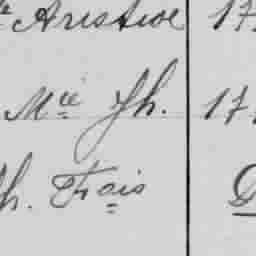 Aristide 17
Mie Jh. 17
h. Frois D